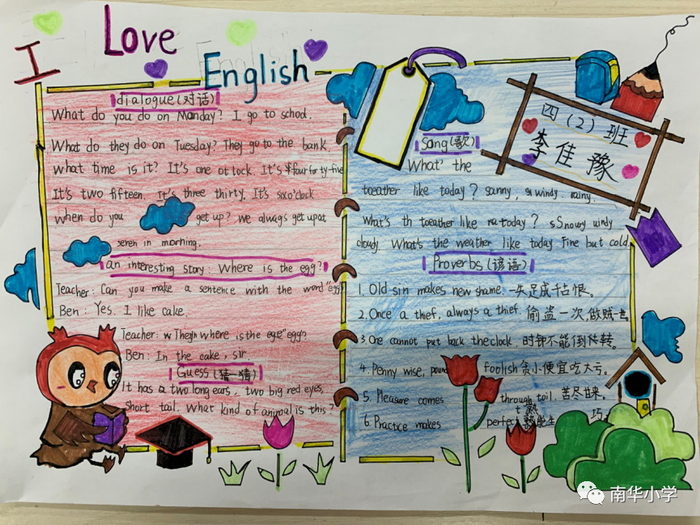 I Love English
dialogue(对话)
What do you do on Monday? I go to school.
What do they do on Tuesday? They go to the bank
what time is it? It's one otlock. It's four forty-five
It's two fifteen. It's three thirty. It's six o'clock
when do you get up? We always get up at
seven in morning.
an interesting story: Where is the egg?
Teacher: Can you make a sentence with the word "egg"
Ben: Yes. I like cake.
Teacher: where is the egg?
Ben: In the cake, sir.
Guess(猜一猜)
It has a two long ears, two big red eyes,
short tail. What kind of animal is this?
四(2)班
李佳豫
Sang(歌)
What' the
toeather like today? sunny, windy. rainy.
What's th toeather like today? Snowy windy
cloudy What's the weather like today Fine but cold
Proverbs(谚语)
1. Old sin makes new shame. 一失足成千古恨。
2. Once a thief, always a thief. 偷盗一次，做贼一
3. One cannot put back the clock 时钟不能倒转。
4. Penny wise, pound foolish 贪小便宜吃大亏。
5. Pleasure comes through toil. 苦尽甘来。
6. Practice makes perfect 熟能生巧
南华小学